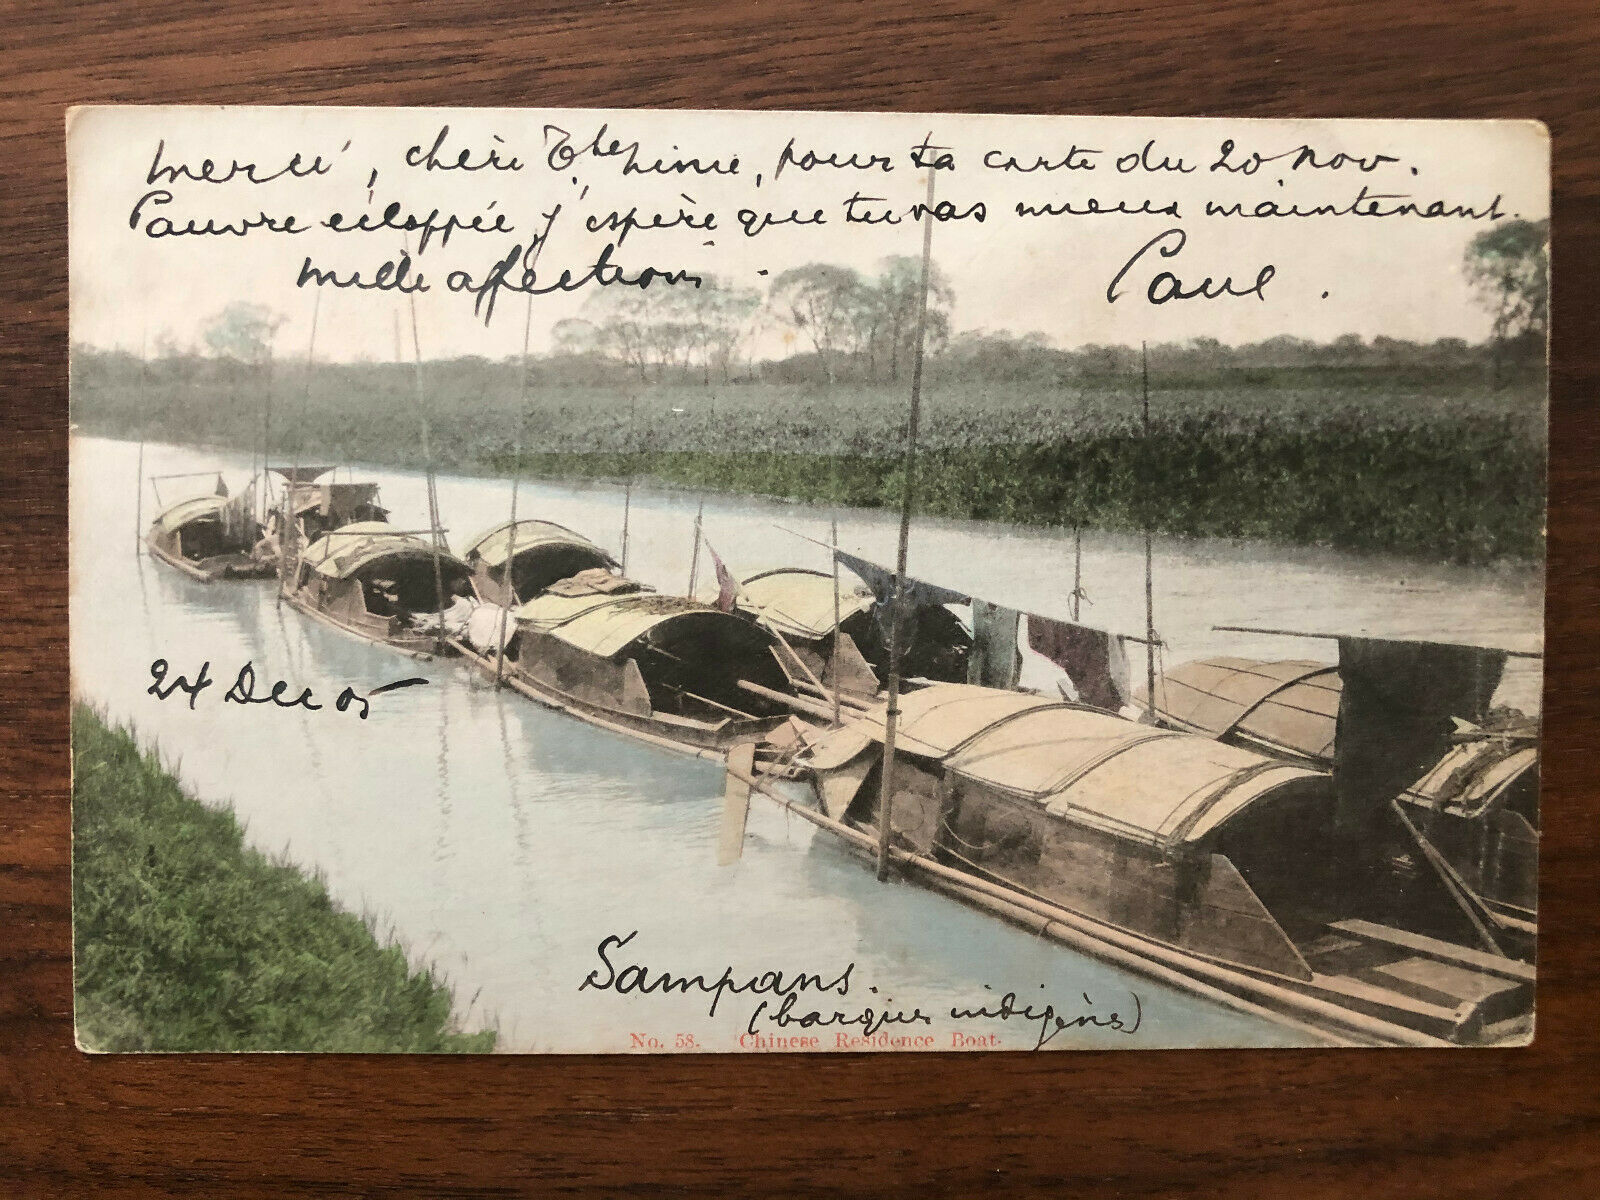 Merci, chère Thephine, pour ta carte du 20 Nov.
Pauvre éclopée, j'espère que tu vas mieux maintenant.
Mille affections. Paul.
24 Dec 05
Sampans.
(barques indigènes)
No. 58. Chinese Residence Boat.